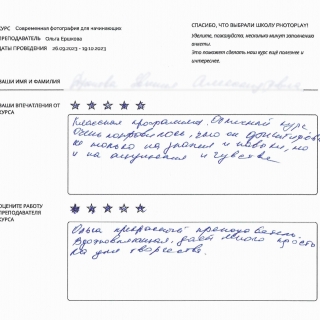 КУРС Современная фотография для начинающих
ПРЕПОДАВАТЕЛЬ Ольга Ершкова
ДАТЫ ПРОВЕДЕНИЯ 26.09.2023 - 19.10.2023
СПАСИБО, ЧТО ВЫБРАЛИ ШКОЛУ PHOTOPLAY!
Уделите, пожалуйста, несколько минут заполнению анкеты.
Это поможет сделать наш курс ещё полезнее и интереснее.
ВАШИ ИМЯ И ФАМИЛИЯ
ВАШИ ВПЕЧАТЛЕНИЯ ОТ КУРСА
Классная программа. Отличный курс.
Очень понравилось, что он ориентирован
не только на знания и навыки, но
и на ощущения и чувства
ОЦЕНИТЕ РАБОТУ ПРЕПОДАВАТЕЛЯ КУРСА
Ольга прекрасный преподаватель.
Вдохновляющая, даёт много
для творчества.